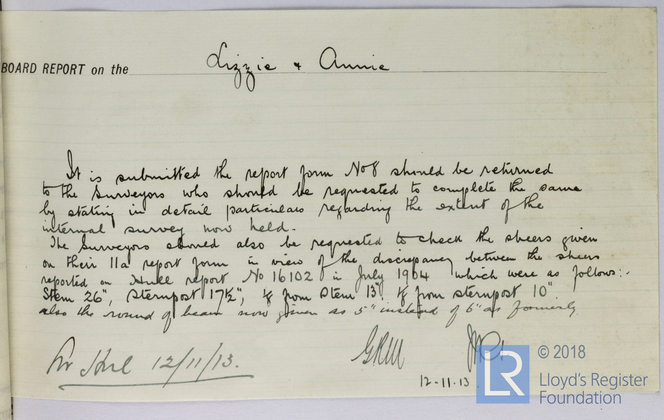 BOARD REPORT on the Lizzie & Annie
It is submitted the report form No 8 should be returned
to the Surveyors who should be requested to complete the same
by stating in detail particulars regarding the extent of the
internal survey now held.
The Surveyors should also be requested to check the sheers given
on their 11a report form in view of the discrepancy between the sheers
reported on Hull report No 16102 in July 1904 which were as follows:-
Stem 26", Sternpost 17½", ⅛ from Stem 13" ⅛ from sternpost 10"
also the round of beam now given as 5" instead of 6" as formerly
12/11/13.
12-11-13
LR
© 2018
Lloyd's Register
Foundation